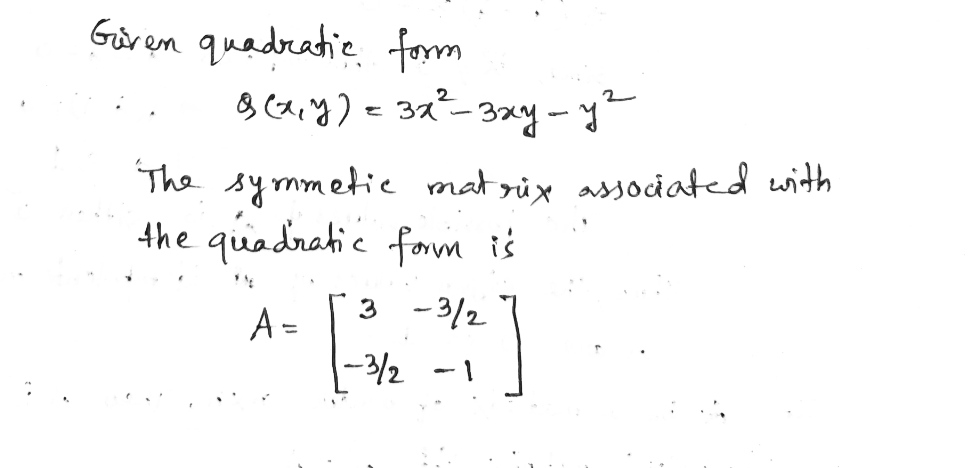 Given quadratic form
Q(x,y) = 3x² - 3xy - y²
The symmetic matrix associated with
the quadratic form is
A = [ 3 -3/2
-3/2 -1 ]